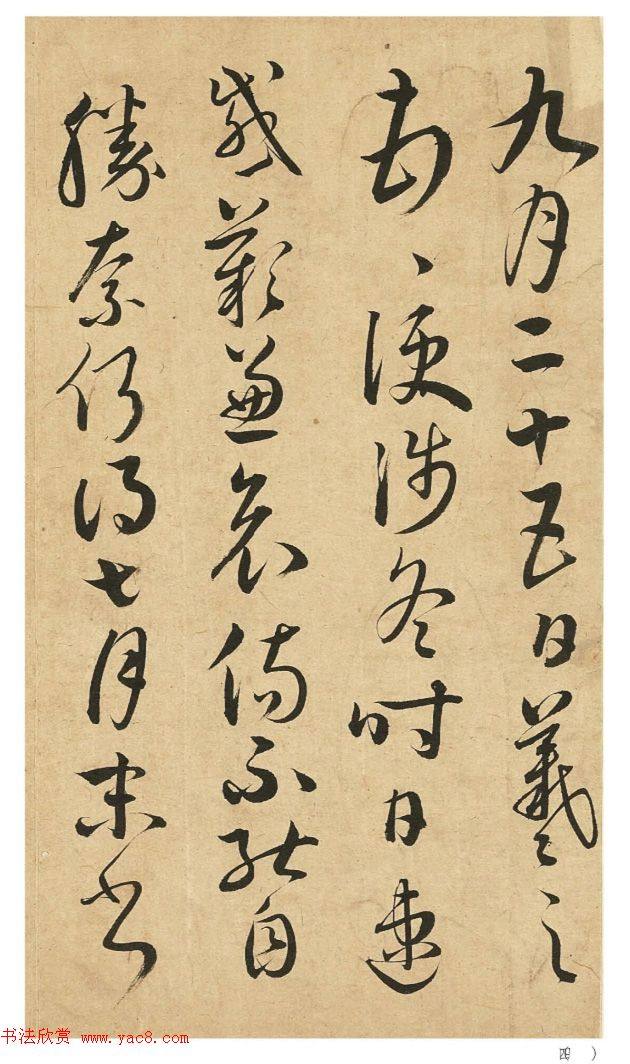 九月二十五日羲之
便涉冬時日速
感歎兼哀傷不能自
勝奈何得七月末書
书法欣赏 www.yac8.com
四 )